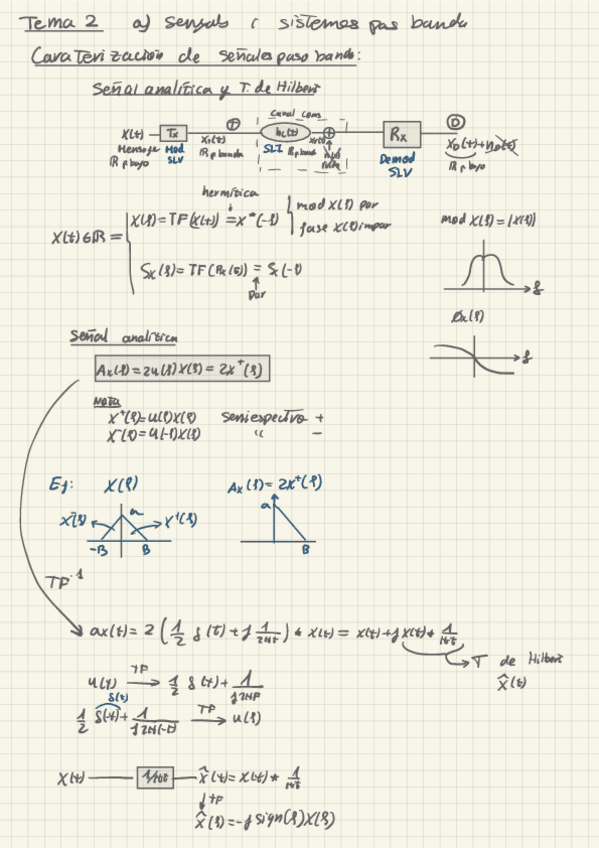 Tema 2 a) Señales y sistemas pas banda
Caraterización de señales paso banda:
Señal analítica y T. de Hilbert
Canal com
X(t) Tx T hc(t) + Rx D
Mensaje Mod SLI Demod
ℝ p bajo SLV ℝ p banda ℝ p band SLV ℝ p bajo
hermítica
X(t) ∈ ℝ = X(f) = TF(X(t)) = X*(-f) mod X(f) par
fase X(f) impar
Sx(f) = TF(Rx(τ)) = Sx(-f)
Par
mod X(f) = |X(f)|
f
Øx(f)
f
Señal analítica
Ax(f) = 2u(f)X(f) = 2X⁺(f)
NOTA
X⁺(f) = u(f)X(f) Semiespectro +
X⁻(f) = u(-f)X(f) " -
Ej: X(f) Ax(f) = 2X⁺(f)
X⁻(f) a X⁺(f) a
-B B B
TF⁻¹
ax(t) = 2 (1/2 δ(t) + j 1/2πt) * X(t) = X(t) + j X(t) * 1/πt
T de Hilbert
X̂(t)
u(t) TF → 1/2 δ(f) + 1/j2πf
δ(t)
1/2 δ(-t) + 1/j2π(-t) TF → u(f)
X(t) 1/πt X̂(t) = X(t) * 1/πt
↓ TF
X̂(f) = -j sign(f)X(f)